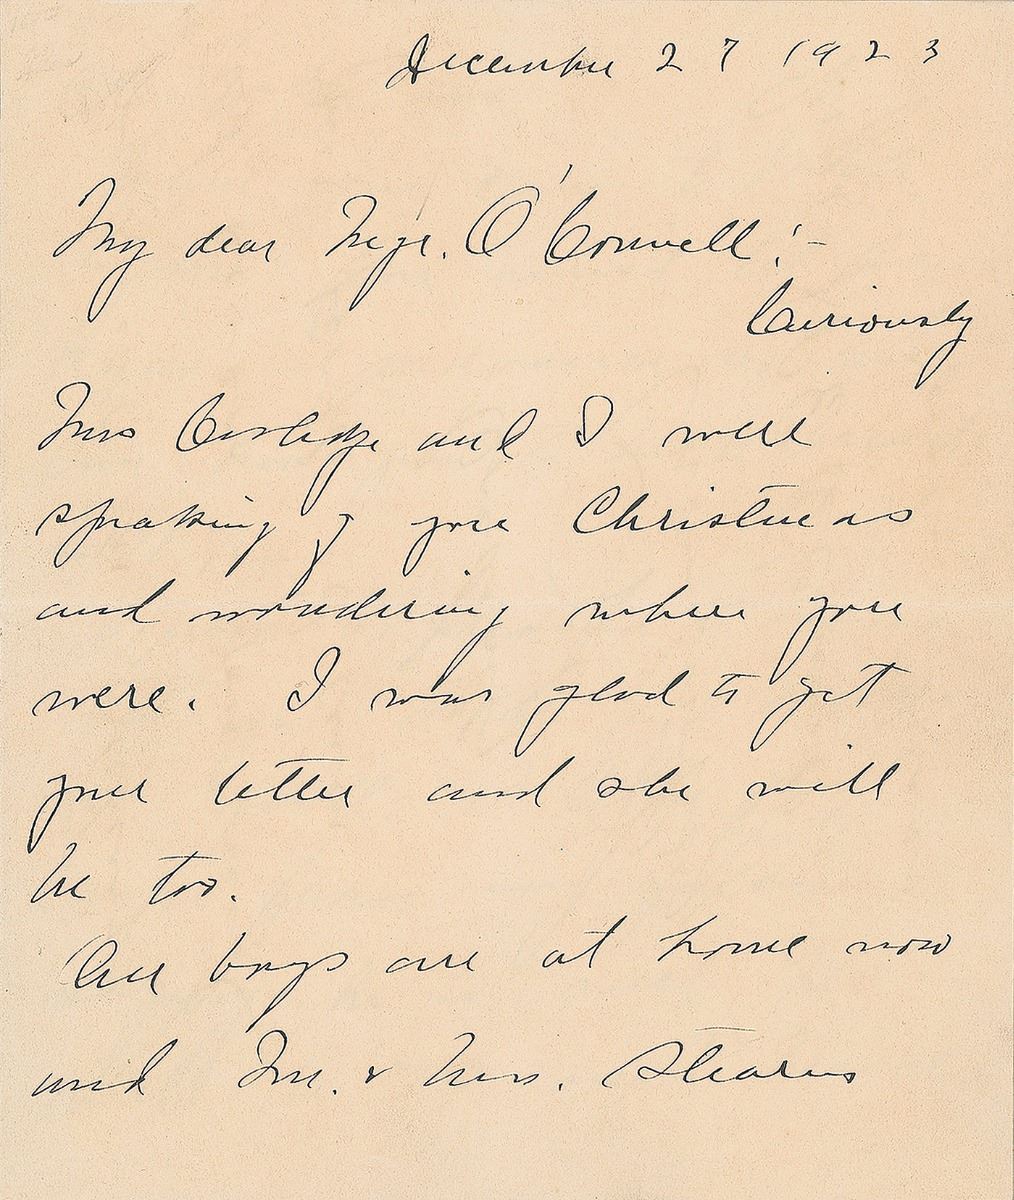 December 27 1923
My dear Mgr. O'Connell:-
Curiously
Mrs Coolidge and I were
speaking of you Christmas
and wondering where you
were. I was glad to get
your letter and she will
be too.
Our boys are at home now
and Mr. & Mrs. Stearns